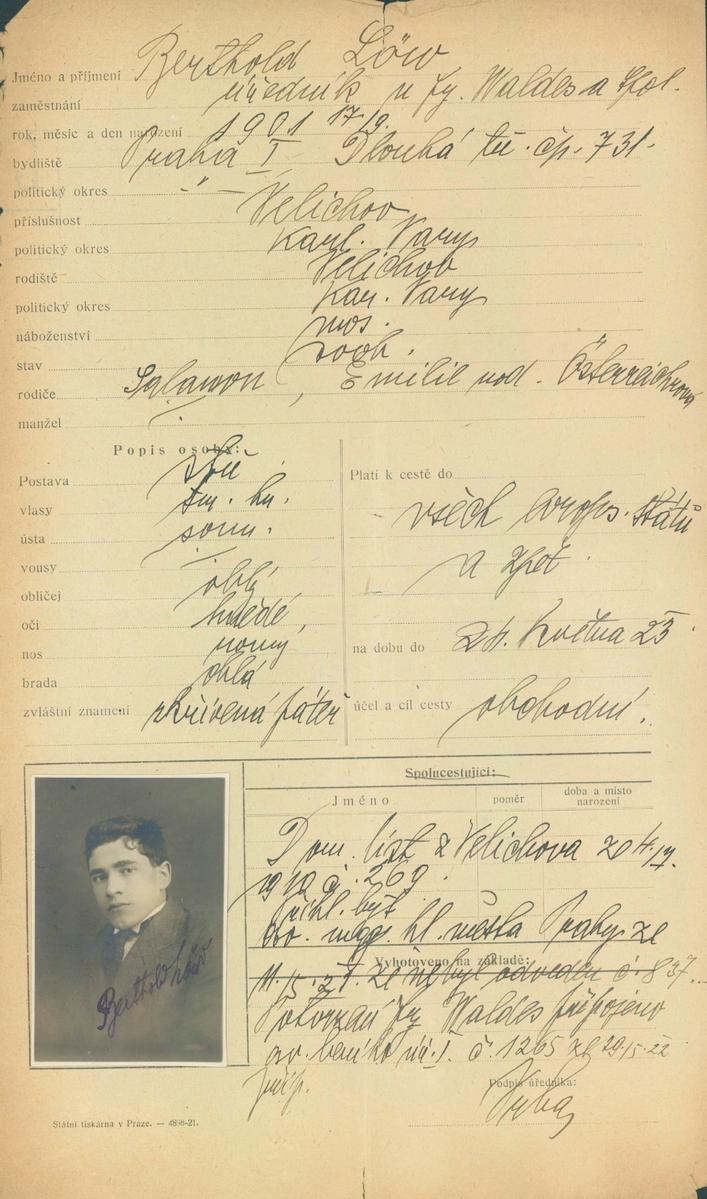 Jméno a příjmení Berthold Löw
zaměstnání úředník u fy. Waldes a Spol.
rok, měsíc a den narození 1901 17/9.
bydliště Praha I Dlouhá tř. čp. 731.
politický okres -"-
příslušnost Velichov
politický okres Karl. Vary
rodiště Velichov
politický okres Kar. Vary
náboženství mos.
stav svob.
rodiče Salamon, Emilie rod. Österreichrova
manžel
Popis osoby:
Postava
vlasy tm. hn.
ústa soum.
vousy
obličej oblý
oči hnědé,
nos rovný
brada oblá
zvláštní znamení skřivená páteř
Platí k cestě do
všech evrops. států
a zpět.
na dobu do 24. května 25.
účel a cíl cesty obchodní.
Spolucestující:
Jméno poměr doba a místo narození
Dom. list z Velichova
1919 č. 269.
přihl. byt
mag. hl. města Prahy ze
Vyhotoveno na základě:
že nebyl odveden č. 837
Potvrzení fy Waldes připojeno
č. 1265 ze 29.5.22
příp.
Podpis úředníka:
Berthold Löw
Státní tiskárna v Praze. — 4898-21.